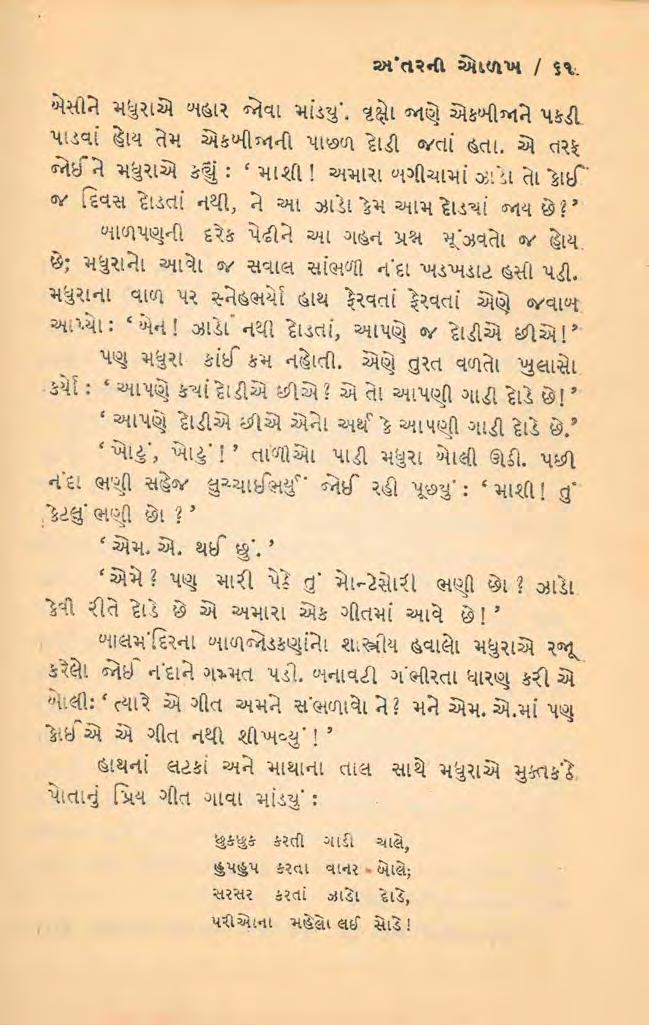 અંતરની ઓળખ / ૬૧
બેસીને મધુરાએ બહાર જોવા માંડ્યું. વૃક્ષો જાણે એકબીજાને પકડી
પાડવાં હોય તેમ એકબીજાની પાછળ દોડી જતાં હતા. એ તરફ
જોઈને મધુરાએ કહ્યું : ‘ માશી ! અમારા બગીચામાં ઝાડો તો કોઈ
જ દિવસ દોડતાં નથી, ને આ ઝાડો કેમ આમ દોડ્યાં જાય છે ? ’
બાળપણની દરેક પેઢીને આ ગહન પ્રશ્ન મૂંઝવતો જ હોય
છે; મધુરાનો આવો જ સવાલ સાંભળી નંદા ખડખડાટ હસી પડી.
મધુરાના વાળ પર સ્નેહભર્યો હાથ ફેરવતાં ફેરવતાં એણે જવાબ
આપ્યો : ‘ બેન ! ઝાડો નથી દોડતાં, આપણે જ દોડીએ છીએ ! ’
પણ મધુરા કાંઈ કમ નહોતી. એણે તુરત વળતો ખુલાસો
કર્યો : ‘ આપણે ક્યાં દોડીએ છીએ ? એ તો આપણી ગાડી દોડે છે ! ’
‘ આપણે દોડીએ છીએ એનો અર્થ કે આપણી ગાડી દોડે છે. ’
‘ ખોટું, ખોટું ! ’ તાળીઓ પાડી મધુરા બોલી ઊઠી. પછી
નંદા ભણી સહેજ લુચ્ચાઈભર્યું જોઈ રહી પૂછ્યું : ‘ માશી ! તું
કેટલું ભણી છો ? ’
‘ એમ. એ. થઈ છું. ’
‘ એમે ? પણ મારી પેઠે તું મોન્ટેસોરી ભણી છો ? ઝાડો
કેવી રીતે દોડે છે એ અમારા એક ગીતમાં આવે છે ! ’
બાલમંદિરના બાળજોડકણાંનો શાસ્ત્રીય હવાલો મધુરાએ રજૂ
કરેલો જોઈ નંદાને ગમ્મત પડી. બનાવટી ગંભીરતા ધારણ કરી એ
બોલી: ‘ ત્યારે એ ગીત અમને સંભળાવો ને ? મને એમ. એ.માં પણ
કોઈએ એ ગીત નથી શીખવ્યું ! ’
હાથનાં લટકાં અને માથાના તાલ સાથે મધુરાએ મુક્તકંઠે
પોતાનું પ્રિય ગીત ગાવા માંડ્યું :
છુકછુક કરતી ગાડી ચાલે,
હુપહુપ કરતા વાનર બોલે;
સરસર કરતાં ઝાડો દોડે,
પરીઓના મહેલો લઈ સોડે !